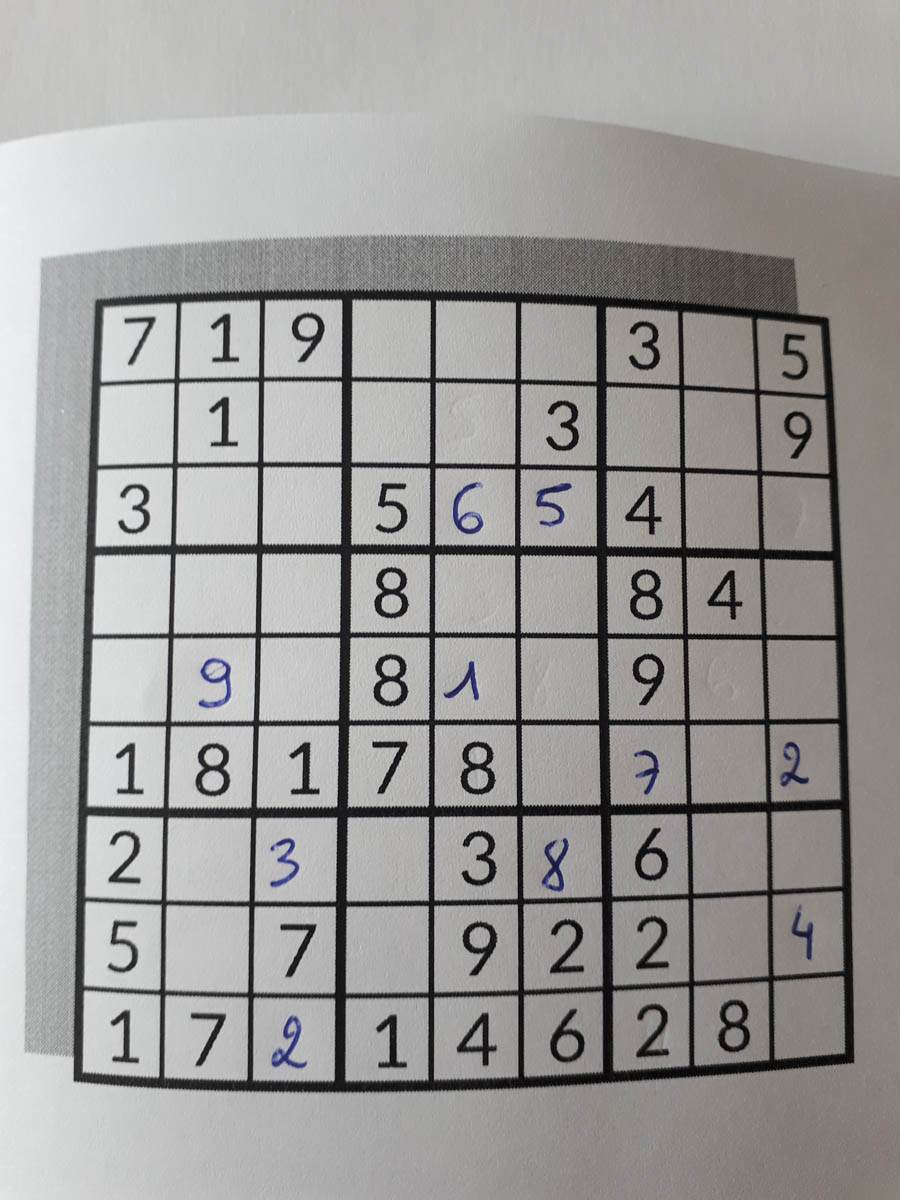 7 1 9 3 5
1 3 9
3 5 6 5 4
8 8 4
9 8 1 9
1 8 1 7 8 7 2
2 3 3 8 6
5 7 9 2 2 4
1 7 2 1 4 6 2 8